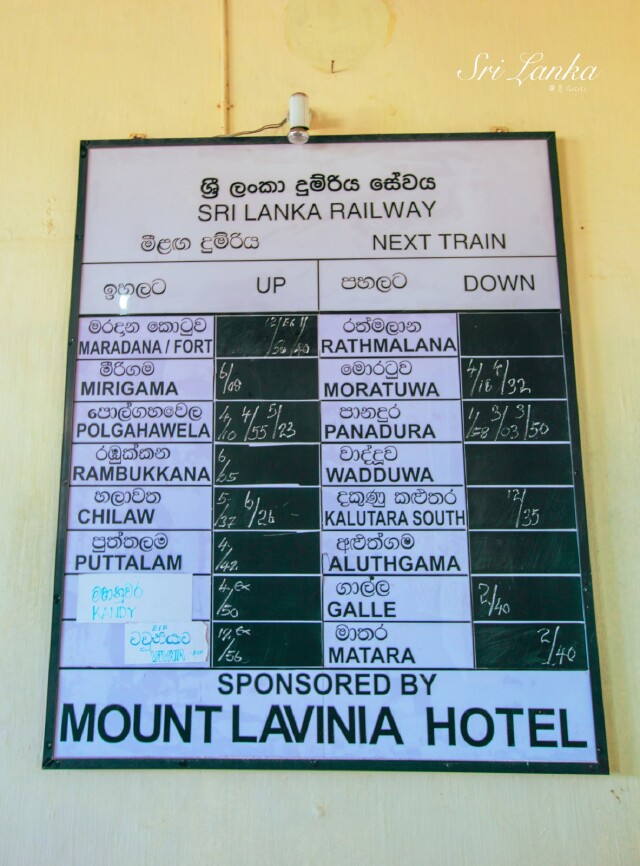 Sri Lanka
ශ්‍රී ලංකා දුම්රිය සේවය
SRI LANKA RAILWAY
මීළඟ දුම්රිය NEXT TRAIN
ඉහලට UP පහලට DOWN
මරදාන කොටුව රත්මලාන
MARADANA / FORT RATHMALANA
මීරිගම මොරටුව
MIRIGAMA 6/08 MORATUWA 4/18 4/32
පොල්ගහවෙල පානදුර
POLGAHAWELA 4/10 4/55 5/23 PANADURA 1/58 3/03 3/50
රඹුක්කන වාද්දූව
RAMBUKKANA 6/05 WADDUWA
හලාවත දකුණු කළුතර
CHILAW 5/37 6/26 KALUTARA SOUTH 12/35
පුත්තලම අළුත්ගම
PUTTALAM 4/42 ALUTHGAMA
මහනුවර ගාල්ල
KANDY 4/50 GALLE 2/40
වවුනියාව මාතර
MATARA 2/40
SPONSORED BY
MOUNT LAVINIA HOTEL